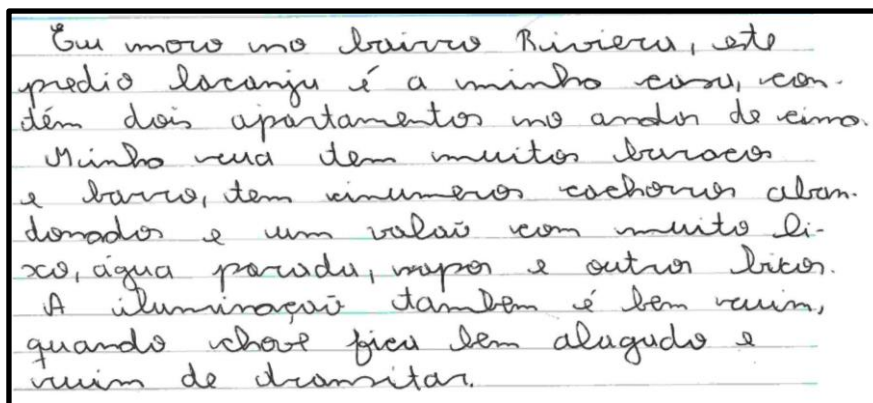 Eu moro no bairro Riviera, este
predio laranja é a minha casa, con-
tém dois apartamentos no andar de cima.
Minha rua tem muitos buracos
e barro, tem inumeros cachorros aban-
donados e um valaõ com muito li-
xo, água parada, sapos e outros bixos.
A iluminaçaõ tambem é bem ruim,
quando chove fica bem alagado e
ruim de transitar.